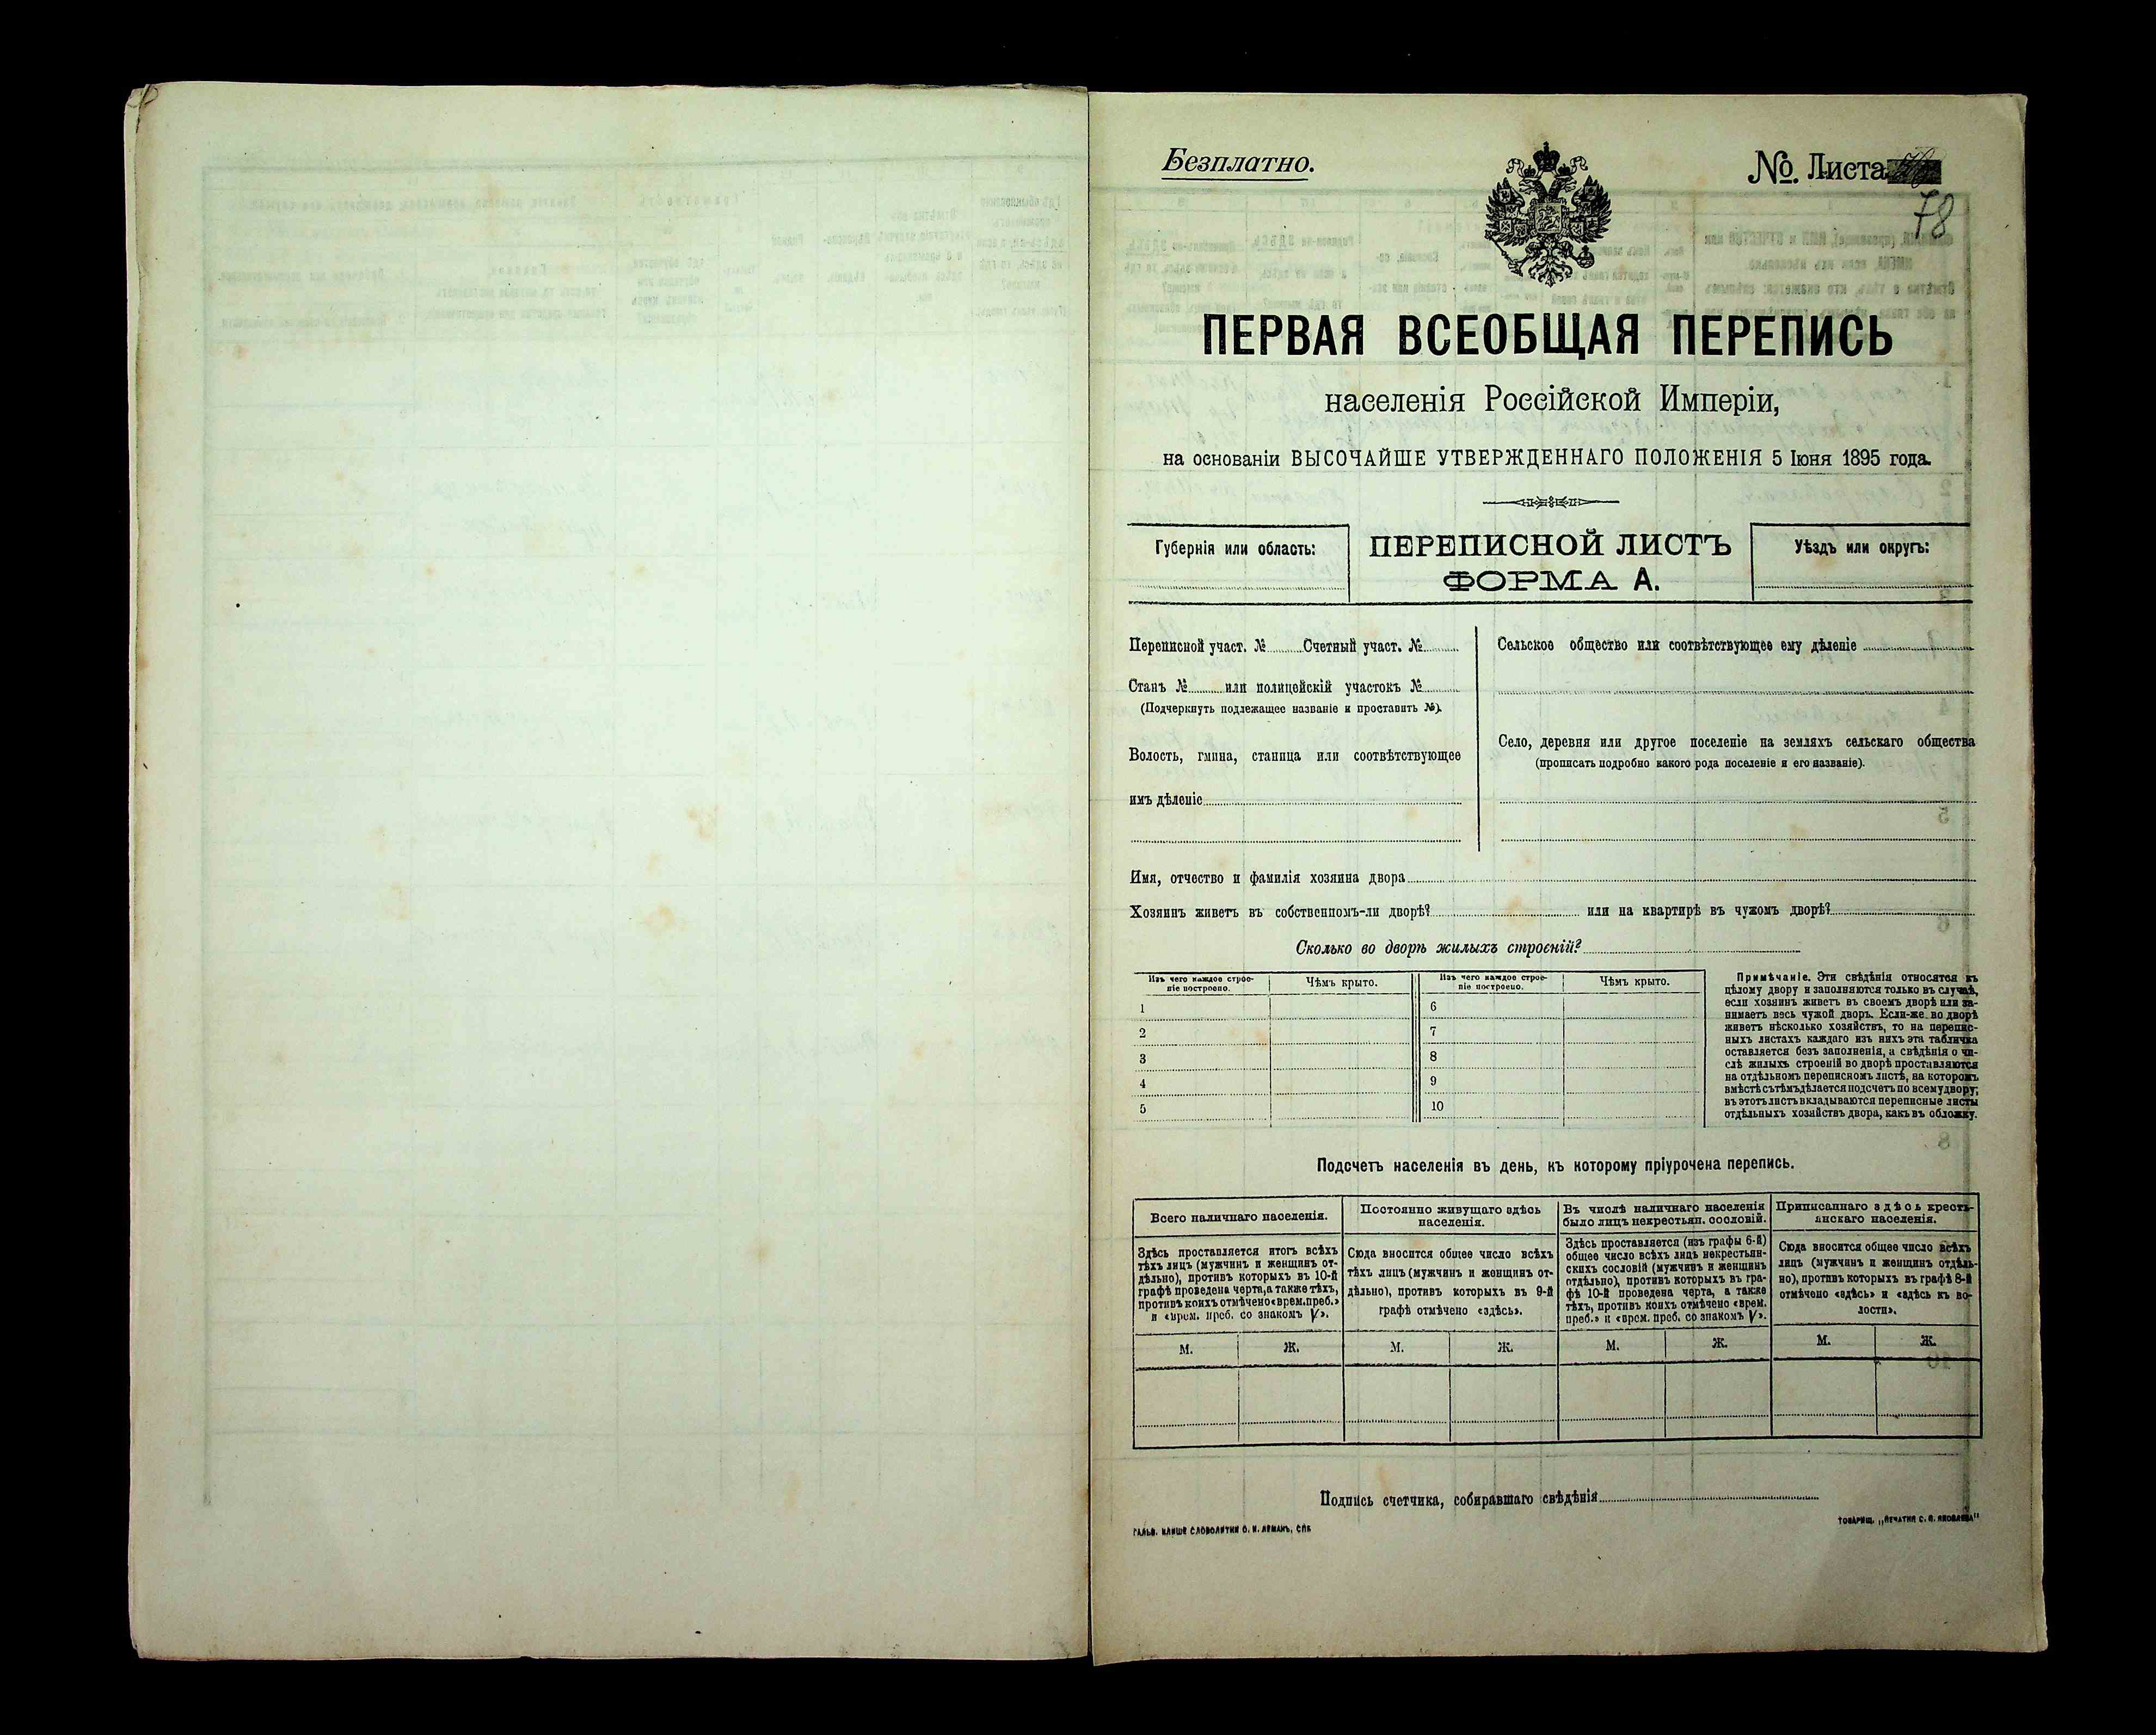 Безплатно.
№. Листа
78
ПЕРВАЯ ВСЕОБЩАЯ ПЕРЕПИСЬ
населенія Россійской Имперіи,
на основаніи ВЫСОЧАЙШЕ УТВЕРЖДЕННАГО ПОЛОЖЕНІЯ 5 Іюня 1895 года.
Губернія или область:
ПЕРЕПИСНОЙ ЛИСТЪ
ФОРМА А.
Уѣздъ или округъ:
Переписной участ. № Счетный участ. №
Станъ № или полицейскій участокъ №
(Подчеркнуть подлежащее названіе и проставить №).
Волость, гмина, станица или соотвѣтствующее
имъ дѣленіе
Сельское общество или соотвѣтствующее ему дѣленіе
Село, деревня или другое поселеніе на земляхъ сельскаго общества
(прописать подробно какого рода поселеніе и его названіе).
Имя, отчество и фамилія хозяина двора
Хозяинъ живетъ въ собственномъ-ли дворѣ? или на квартирѣ въ чужомъ дворѣ?
Сколько во дворѣ жилыхъ строеній?
Изъ чего каждое строе-
ніе построено.
Чѣмъ крыто.
Изъ чего каждое строе-
ніе построено.
Чѣмъ крыто.
1
2
3
4
5
6
7
8
9
10
Примѣчаніе. Эти свѣдѣнія относятся къ
цѣлому двору и заполняются только въ случаѣ,
если хозяинъ живетъ въ своемъ дворѣ или за-
нимаетъ весь чужой дворъ. Если-же во дворѣ
живетъ нѣсколько хозяйствъ, то на перепис-
ныхъ листахъ каждаго изъ нихъ эта табличка
оставляется безъ заполненія, а свѣдѣнія о чи-
слѣ жилыхъ строеній во дворѣ проставляются
на отдѣльномъ переписномъ листѣ, на которомъ
вмѣстѣ съ тѣмъ дѣлается подсчетъ по всему двору;
въ этотъ листъ вкладываются переписные листы
отдѣльныхъ хозяйствъ двора, какъ въ обложку.
Подсчетъ населенія въ день, къ которому пріурочена перепись.
Всего наличнаго населенія.
Здѣсь проставляется итогъ всѣхъ
тѣхъ лицъ (мужчинъ и женщинъ от-
дѣльно), противъ которыхъ въ 10-й
графѣ проведена черта, а также тѣхъ,
противъ коихъ отмѣчено «врем. преб.»
и «врем. преб. со знакомъ V».
М. Ж.
Постоянно живущаго здѣсь
населенія.
Сюда вносится общее число всѣхъ
тѣхъ лицъ (мужчинъ и женщинъ от-
дѣльно), противъ которыхъ въ 9-й
графѣ отмѣчено «здѣсь».
М. Ж.
Въ числѣ наличнаго населенія
было лицъ некрестьян. сословій.
Здѣсь проставляется (изъ графы 6-й)
общее число всѣхъ лицъ некрестьян-
скихъ сословій (мужчинъ и женщинъ
отдѣльно), противъ которыхъ въ гра-
фѣ 10-й проведена черта, а также
тѣхъ, противъ коихъ отмѣчено «врем.
преб.» и «врем. преб. со знакомъ V».
М. Ж.
Приписаннаго здѣсь кресть-
янскаго населенія.
Сюда вносится общее число всѣхъ
лицъ (мужчинъ и женщинъ отдѣль-
но), противъ которыхъ въ графѣ 8-й
отмѣчено «здѣсь» и «здѣсь къ во-
лости».
М. Ж.
Подпись счетчика, собиравшаго свѣдѣнія
ГАЛЬВ. КЛИШЕ СЛОВОЛИТНИ О. И. ЛЕМАНЪ, СПБ
ТОВАРИЩ. „ПЕЧАТНЯ С. П. ЯКОВЛЕВА"